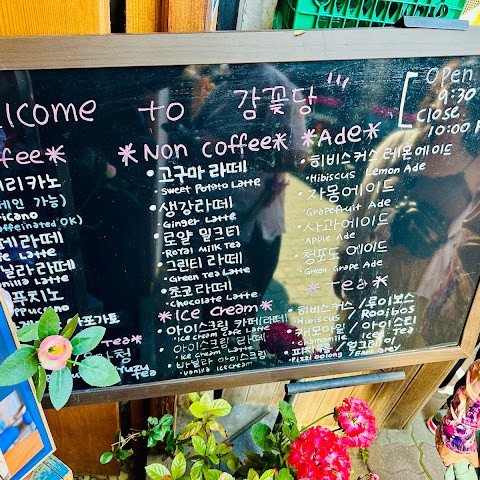 lcome to 감꽃당
Open
9:30
Close
10:00
ffee*
리카노
인 가능)
ricano
affeinated OK)
페라떼
Latte
닐라 라떼
Latte
푸치노
ppuccino
Tea*
Tea
*Non coffee*
• 고구마 라떼
Sweet Potato Latte
• 생강라떼
Ginger Latte
• 로얄 밀크티
Royal Milk Tea
• 그린티 라떼
Green Tea Latte
• 초코 라떼
Chocolate Latte
*Ice Cream*
• 아이스크림 카페라떼
Ice cream Cafe Latte
아이스크림 라떼
Ice cream Latte
• 바닐라 아이스크림
Vanilla Icecream
*Ade*
• 히비스커스 레몬에이드
Hibiscus Lemon Ade
• 자몽에이드
Grapefruit Ade
• 사과에이드
Apple Ade
• 청포도 에이드
Green Grape Ade
*Tea*
• 히비스커스 / 루이보스
Hibiscus / Rooibos
• 캐모마일 / 아이스티
Chamomile / Ice Tea
얼그레이
Earl Grey